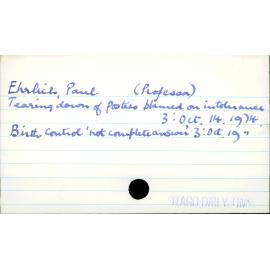 Ehrlich, Paul (Professor)
Tearing down of posters blamed on intolerance
3: Oct. 14. 1974
Birth Control 'not complete answer' 3: Oct 19 "
OTAGO DAILY TIMES